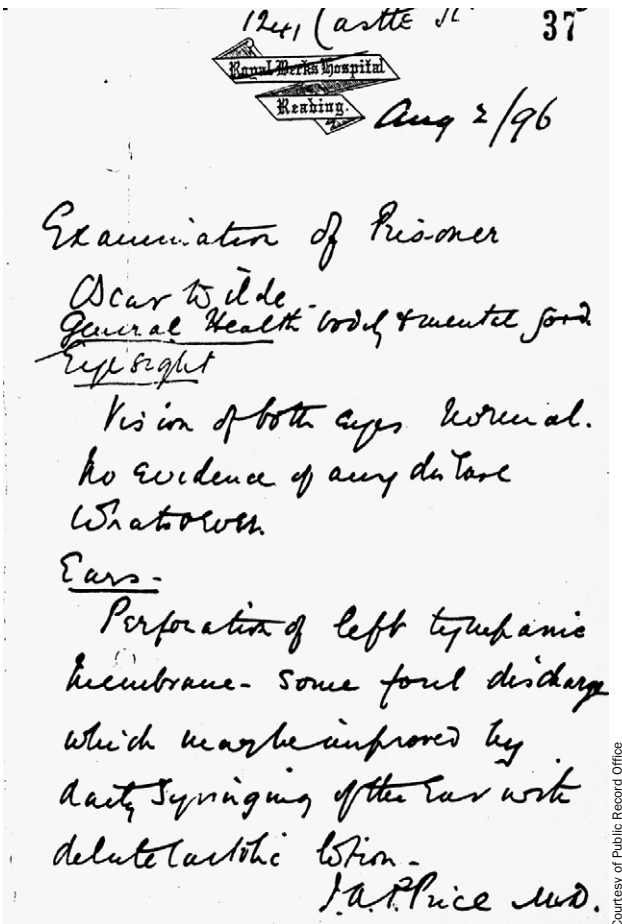 124, Castle St
37
Royal Berks Hospital
Reading.
Aug 2/96
Examination of Prisoner
Oscar Wilde -
General Health bodily & mental good.
Eyesight
Vision of both eyes Normal.
No evidence of any disease
Whatsoever.
Ears -
Perforation of left tympanic
membrane - some foul discharge
which may be improved by
daily Syringing of the Ear with
dilute Carbolic lotion -
J.A.P. Price M.D.
Courtesy of Public Record Office